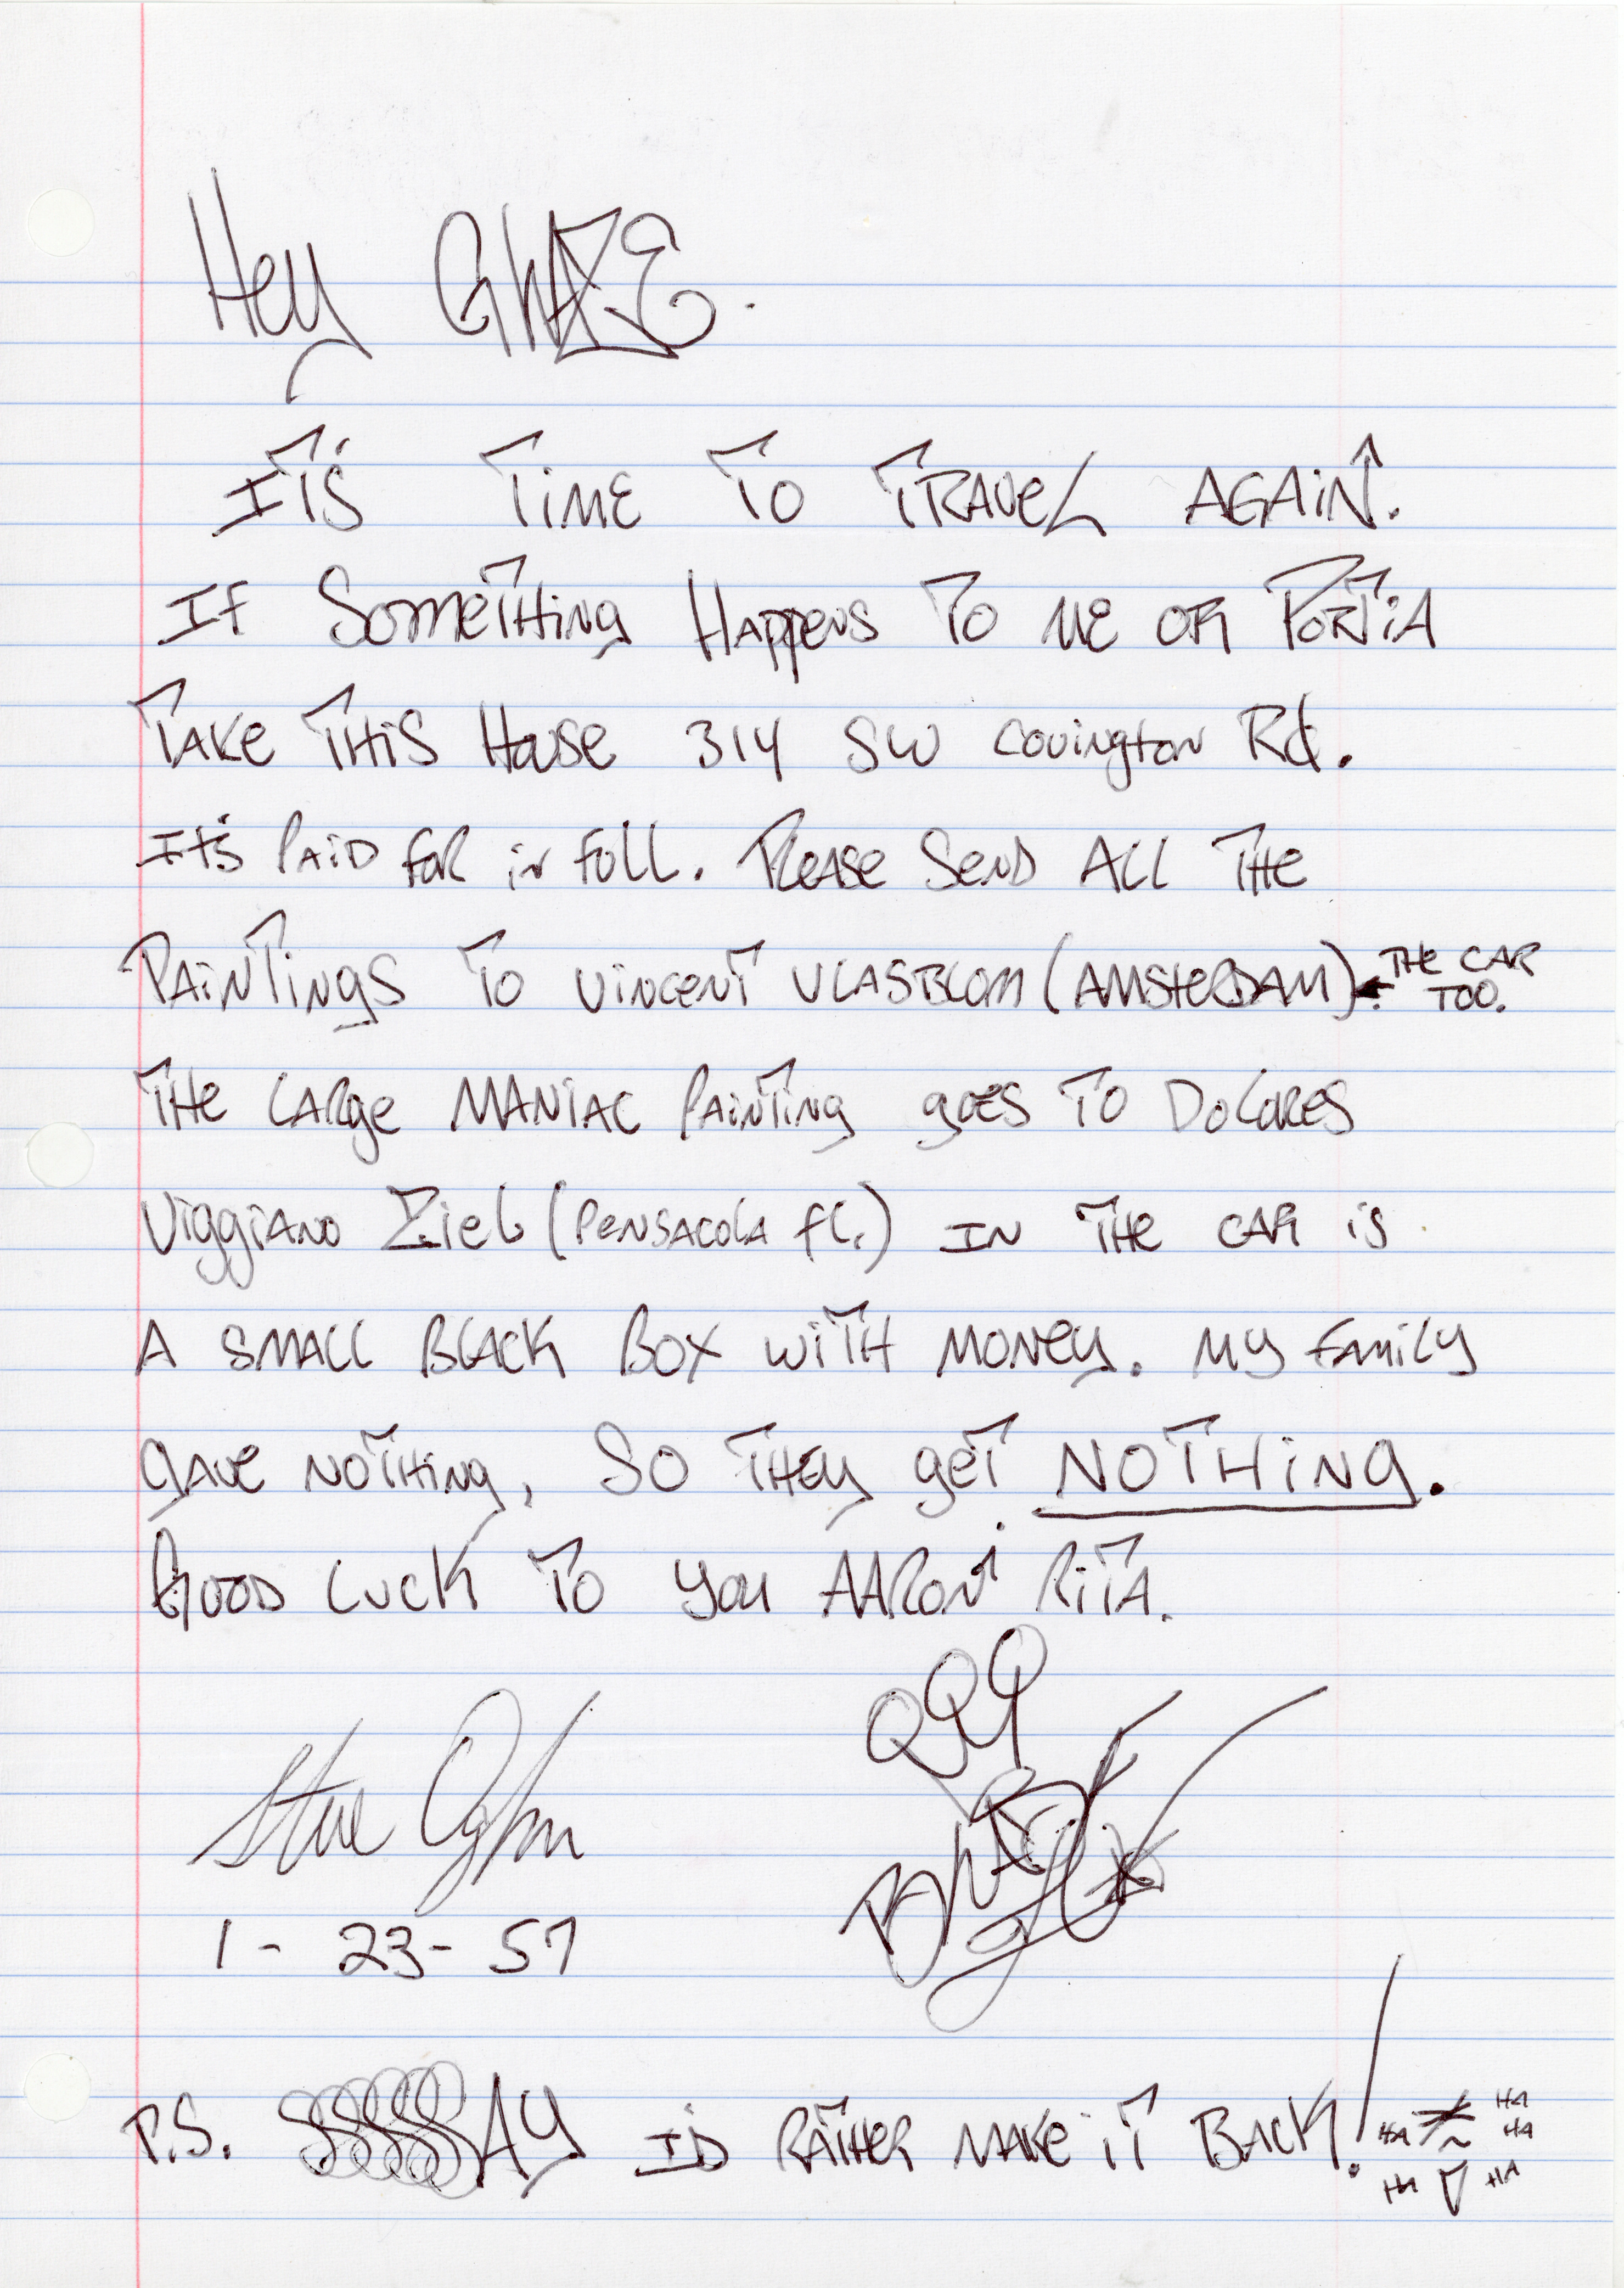 Hey GHAZE.
IT'S TIME TO TRAVEL AGAIN.
IF SOMETHING HAPPENS TO ME OR PORTIA
TAKE THIS HOUSE 314 SW COVINGTON Rd.
It's PAID FOR in FULL. PLEASE SEND ALL THE
PAINTINGS TO VINCENT VLASBLOM (AMSTERDAM). THE CAR
TOO.
THE LARGE MANIAC PAINTING gOES TO DOLORES
VIGGIANO ZIEL (PENSACOLA FL.) IN THE CAR IS
A SMALL BLACK BOX WITH MONEY. MY FAMILY
GAVE NOTHING, SO THEY GET NOTHING.
GOOD LUCK TO YOU AARON RITA.
Steve
1 - 23 - 57
P.S. SSSSSSAY I'D RATHER MAKE IT BACK!
HA HA HA HA HA